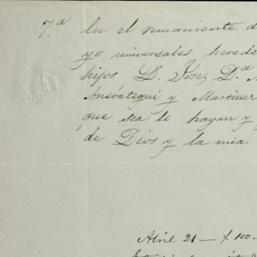 7.ª En el remaniente d
yo universales herede
hijos D. José, D.ª
Anséategui y Martinez
que sea lo hayan y
de Dios y la mia
Abril 21 — $ 100